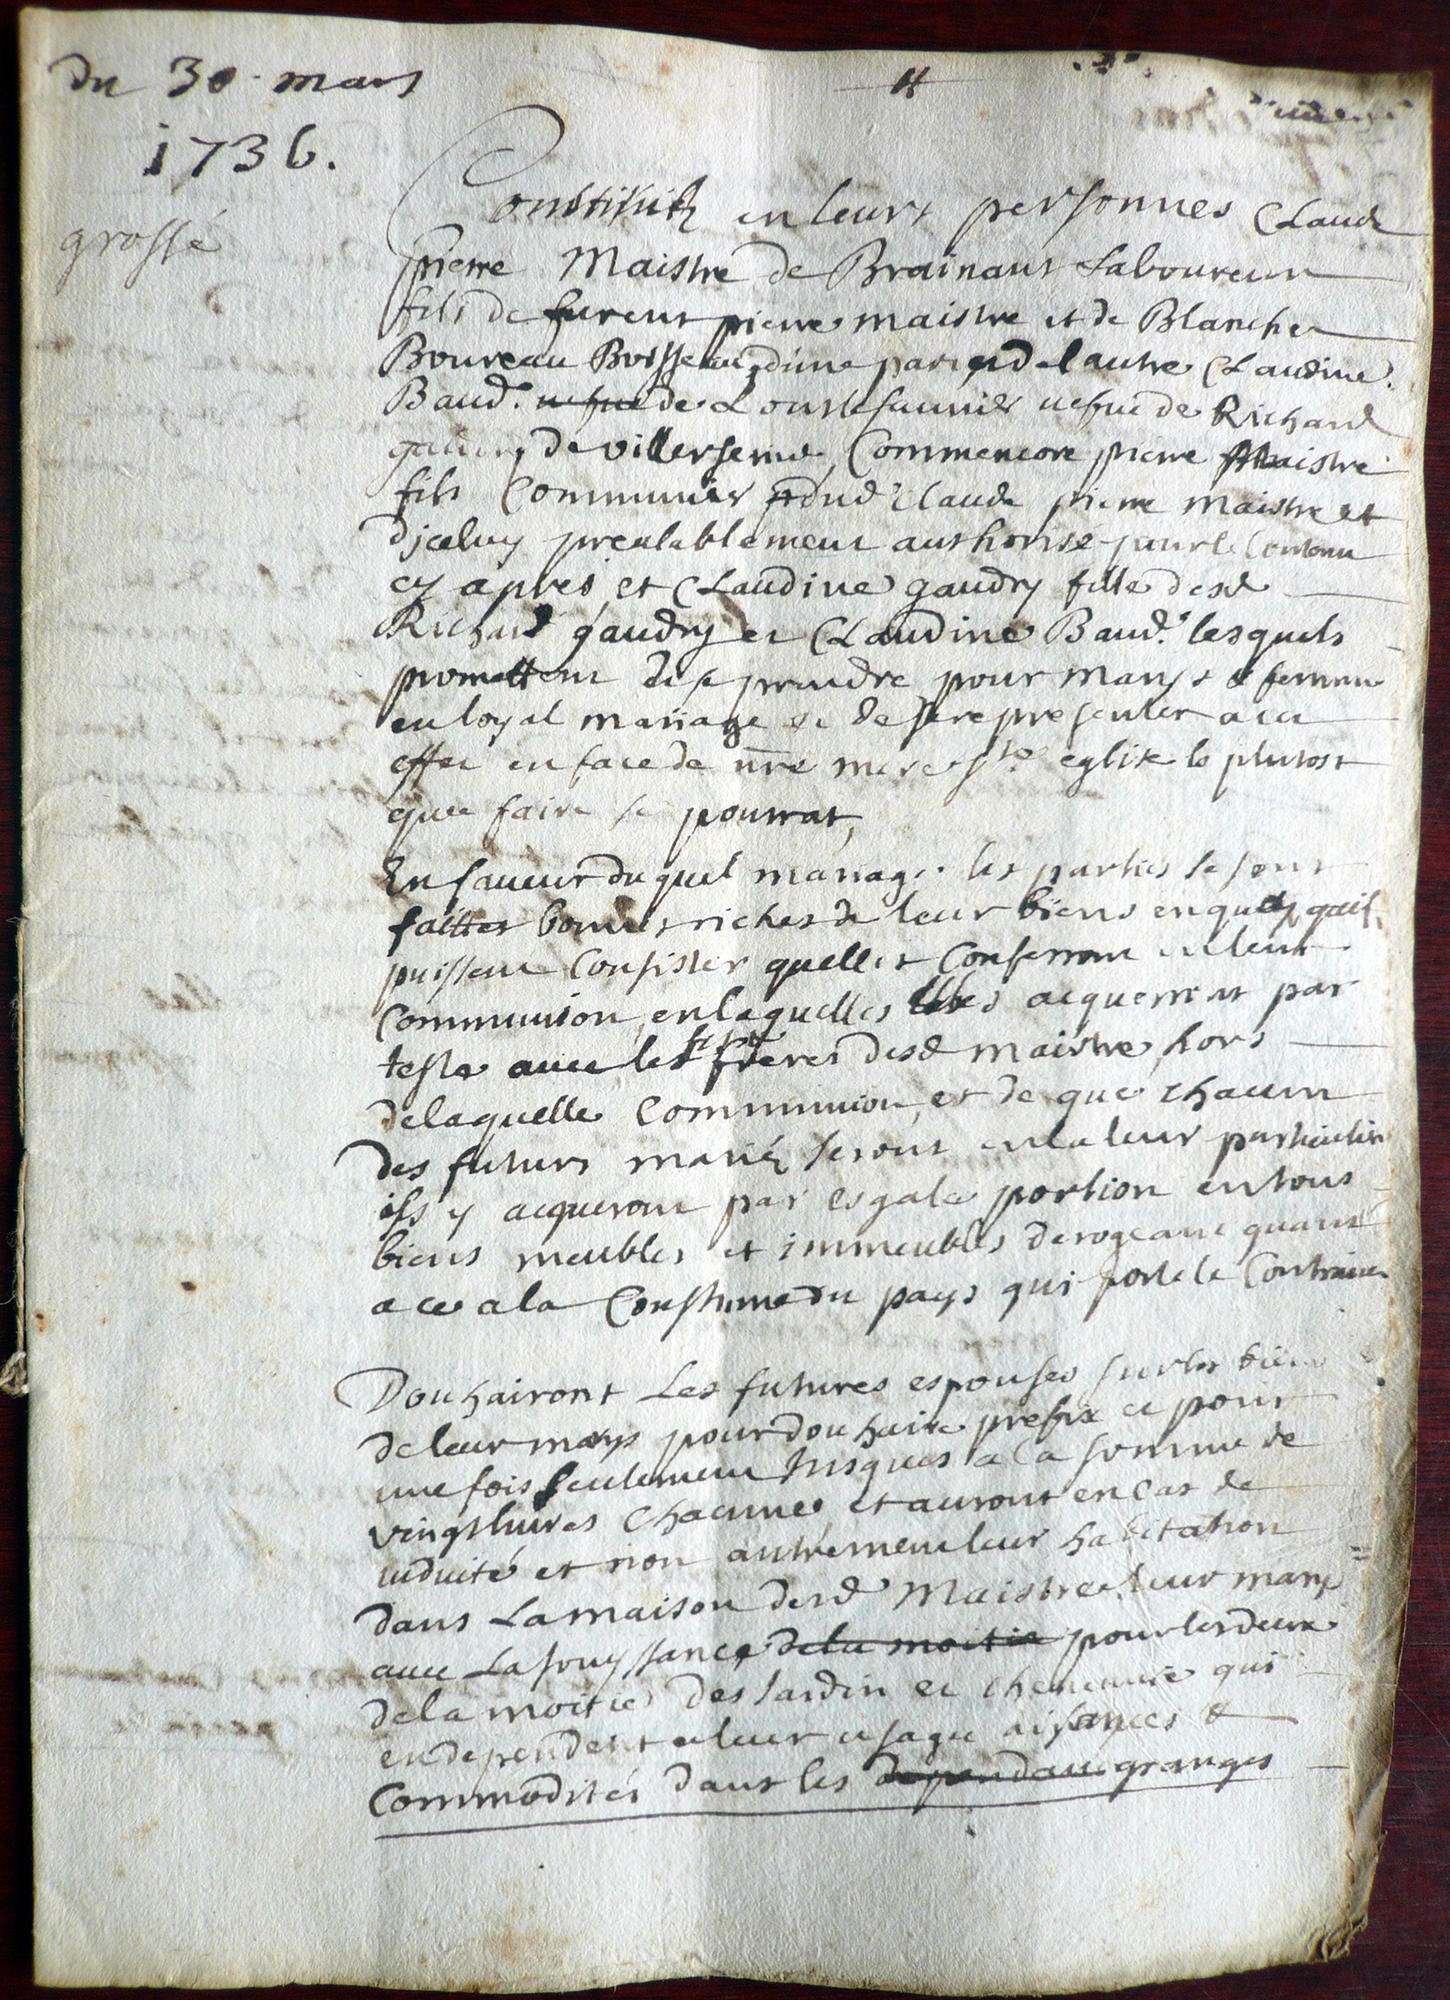 du 30 mars
1736.
grossé
Constituéz en leurs personnes Claude
pierre Maistre de Brainans Laboureur
fils de furent pierre maistre et de Blanche
Boureau Boisseau, dune part, et de lautre Claudine
Baud. de Louis saunier uefue de Richard
gaudry de villerserine, Comme encore pierre Maistre
fils Communier dud. Claude pierre Maistre et
djceluy prealablement authorisé pour le Contenu
cy apres, et Claudine gaudry fille desd
Richard gaudry et Claudine Baud. lesquels
promettent de se prendre pour marys & femmes
en loyal mariage et de se representer a cet
effet en face de nre mere ste eglise le plutost
que faire se pourrat,
En faueur du quel mariage les parties se sont
faittes bonnes riches de leur biens en quoy quils
puissent Consister quelles Conferront en leur
Communion, en laquelles elles acquerront par
teste auec les freres desd maistre, hors
delaquelle Communion, et de que chacun
des futurs mariéz seront en la leur particuliere
ils y acqueront par esgale portion en tous
biens meubles et immeubles derogeant quant
a ce a la Coustume du pays qui porte le Contraire
Douhairont Les futures espouses sur les biens
de leur marys pour douhaire prefix et pour
une fois seulement Jusques a la somme de
vingt liures Chacune, et auront en Cas de
uiduité et non autrement leur habitation
dans La maison desd Maistre leur marys
auec La Jouyssance de la moitié pour les deux
de la moitié des Jardin et cheneuiere qui
en dependent a leur usage aisances &
Commodités dans les dependant granges